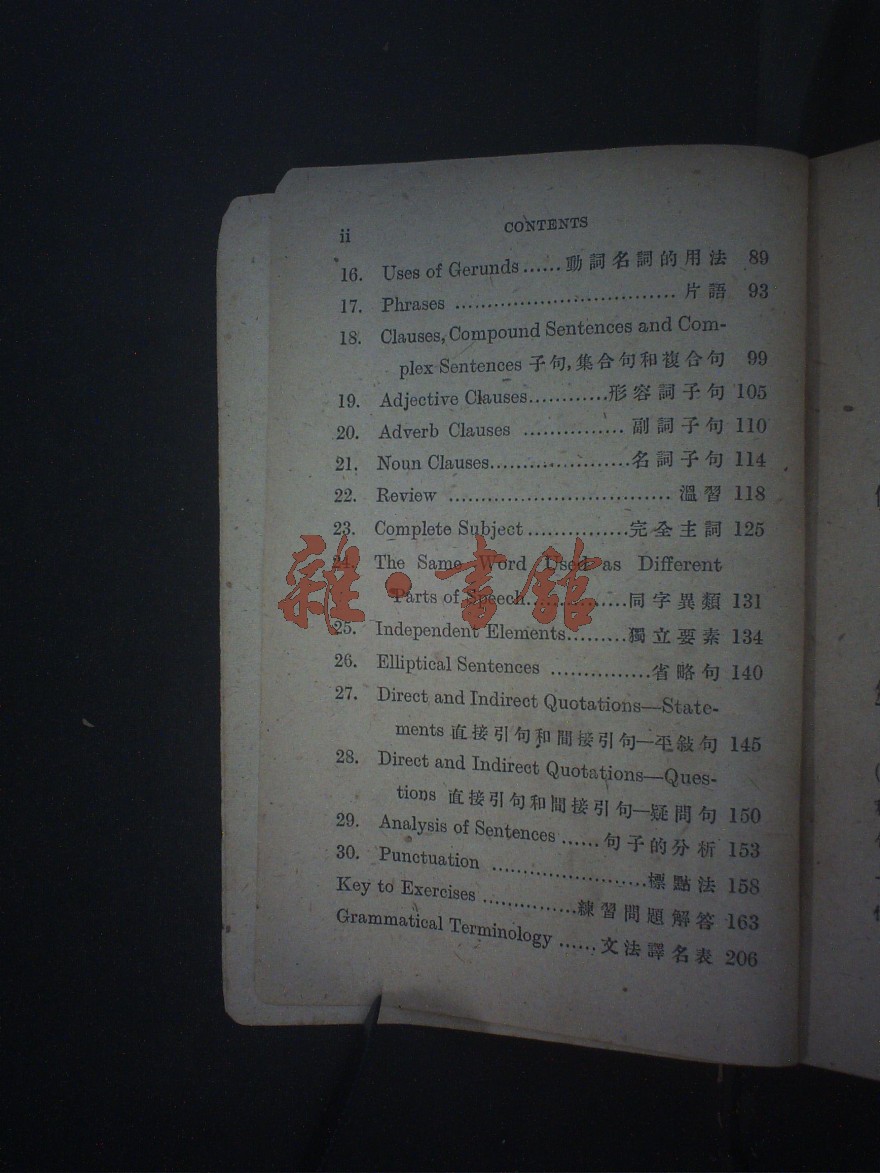 ii CONTENTS
16. Uses of Gerunds......動詞名詞的用法 89
17. Phrases ..................................片語 93
18. Clauses, Compound Sentences and Com-
plex Sentences 子句,集合句和複合句 99
19. Adjective Clauses............形容詞子句 105
20. Adverb Clauses ................副詞子句 110
21. Noun Clauses......................名詞子句 114
22. Review ...................................溫習 118
23. Complete Subject................完全主詞 125
24. The Same Word Used as Different
Parts of Speech................同字異類 131
25. Independent Elements.........獨立要素 134
26. Elliptical Sentences ................省略句 140
27. Direct and Indirect Quotations—State-
ments 直接引句和間接引句—平敍句 145
28. Direct and Indirect Quotations—Ques-
tions 直接引句和間接引句—疑問句 150
29. Analysis of Sentences ......句子的分析 153
30. Punctuation ........................標點法 158
Key to Exercises ...............練習問題解答 163
Grammatical Terminology ......文法譯名表 206
雜·書館